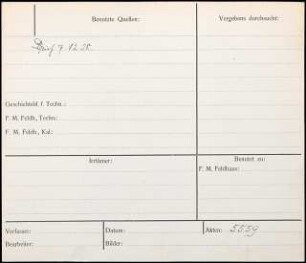 Benutzte Quellen:
Vergebens durchsucht:
Brief 9. 12. 35.
Geschichtsbl. f. Techn.:
F. M. Feldh., Techn.:
F. M. Feldh., Kal.:
Irrtümer:
Benutzt zu:
F. M. Feldhaus:
Verfasser:
Datum:
Akten: 5559
Bearbeiter:
Bilder: